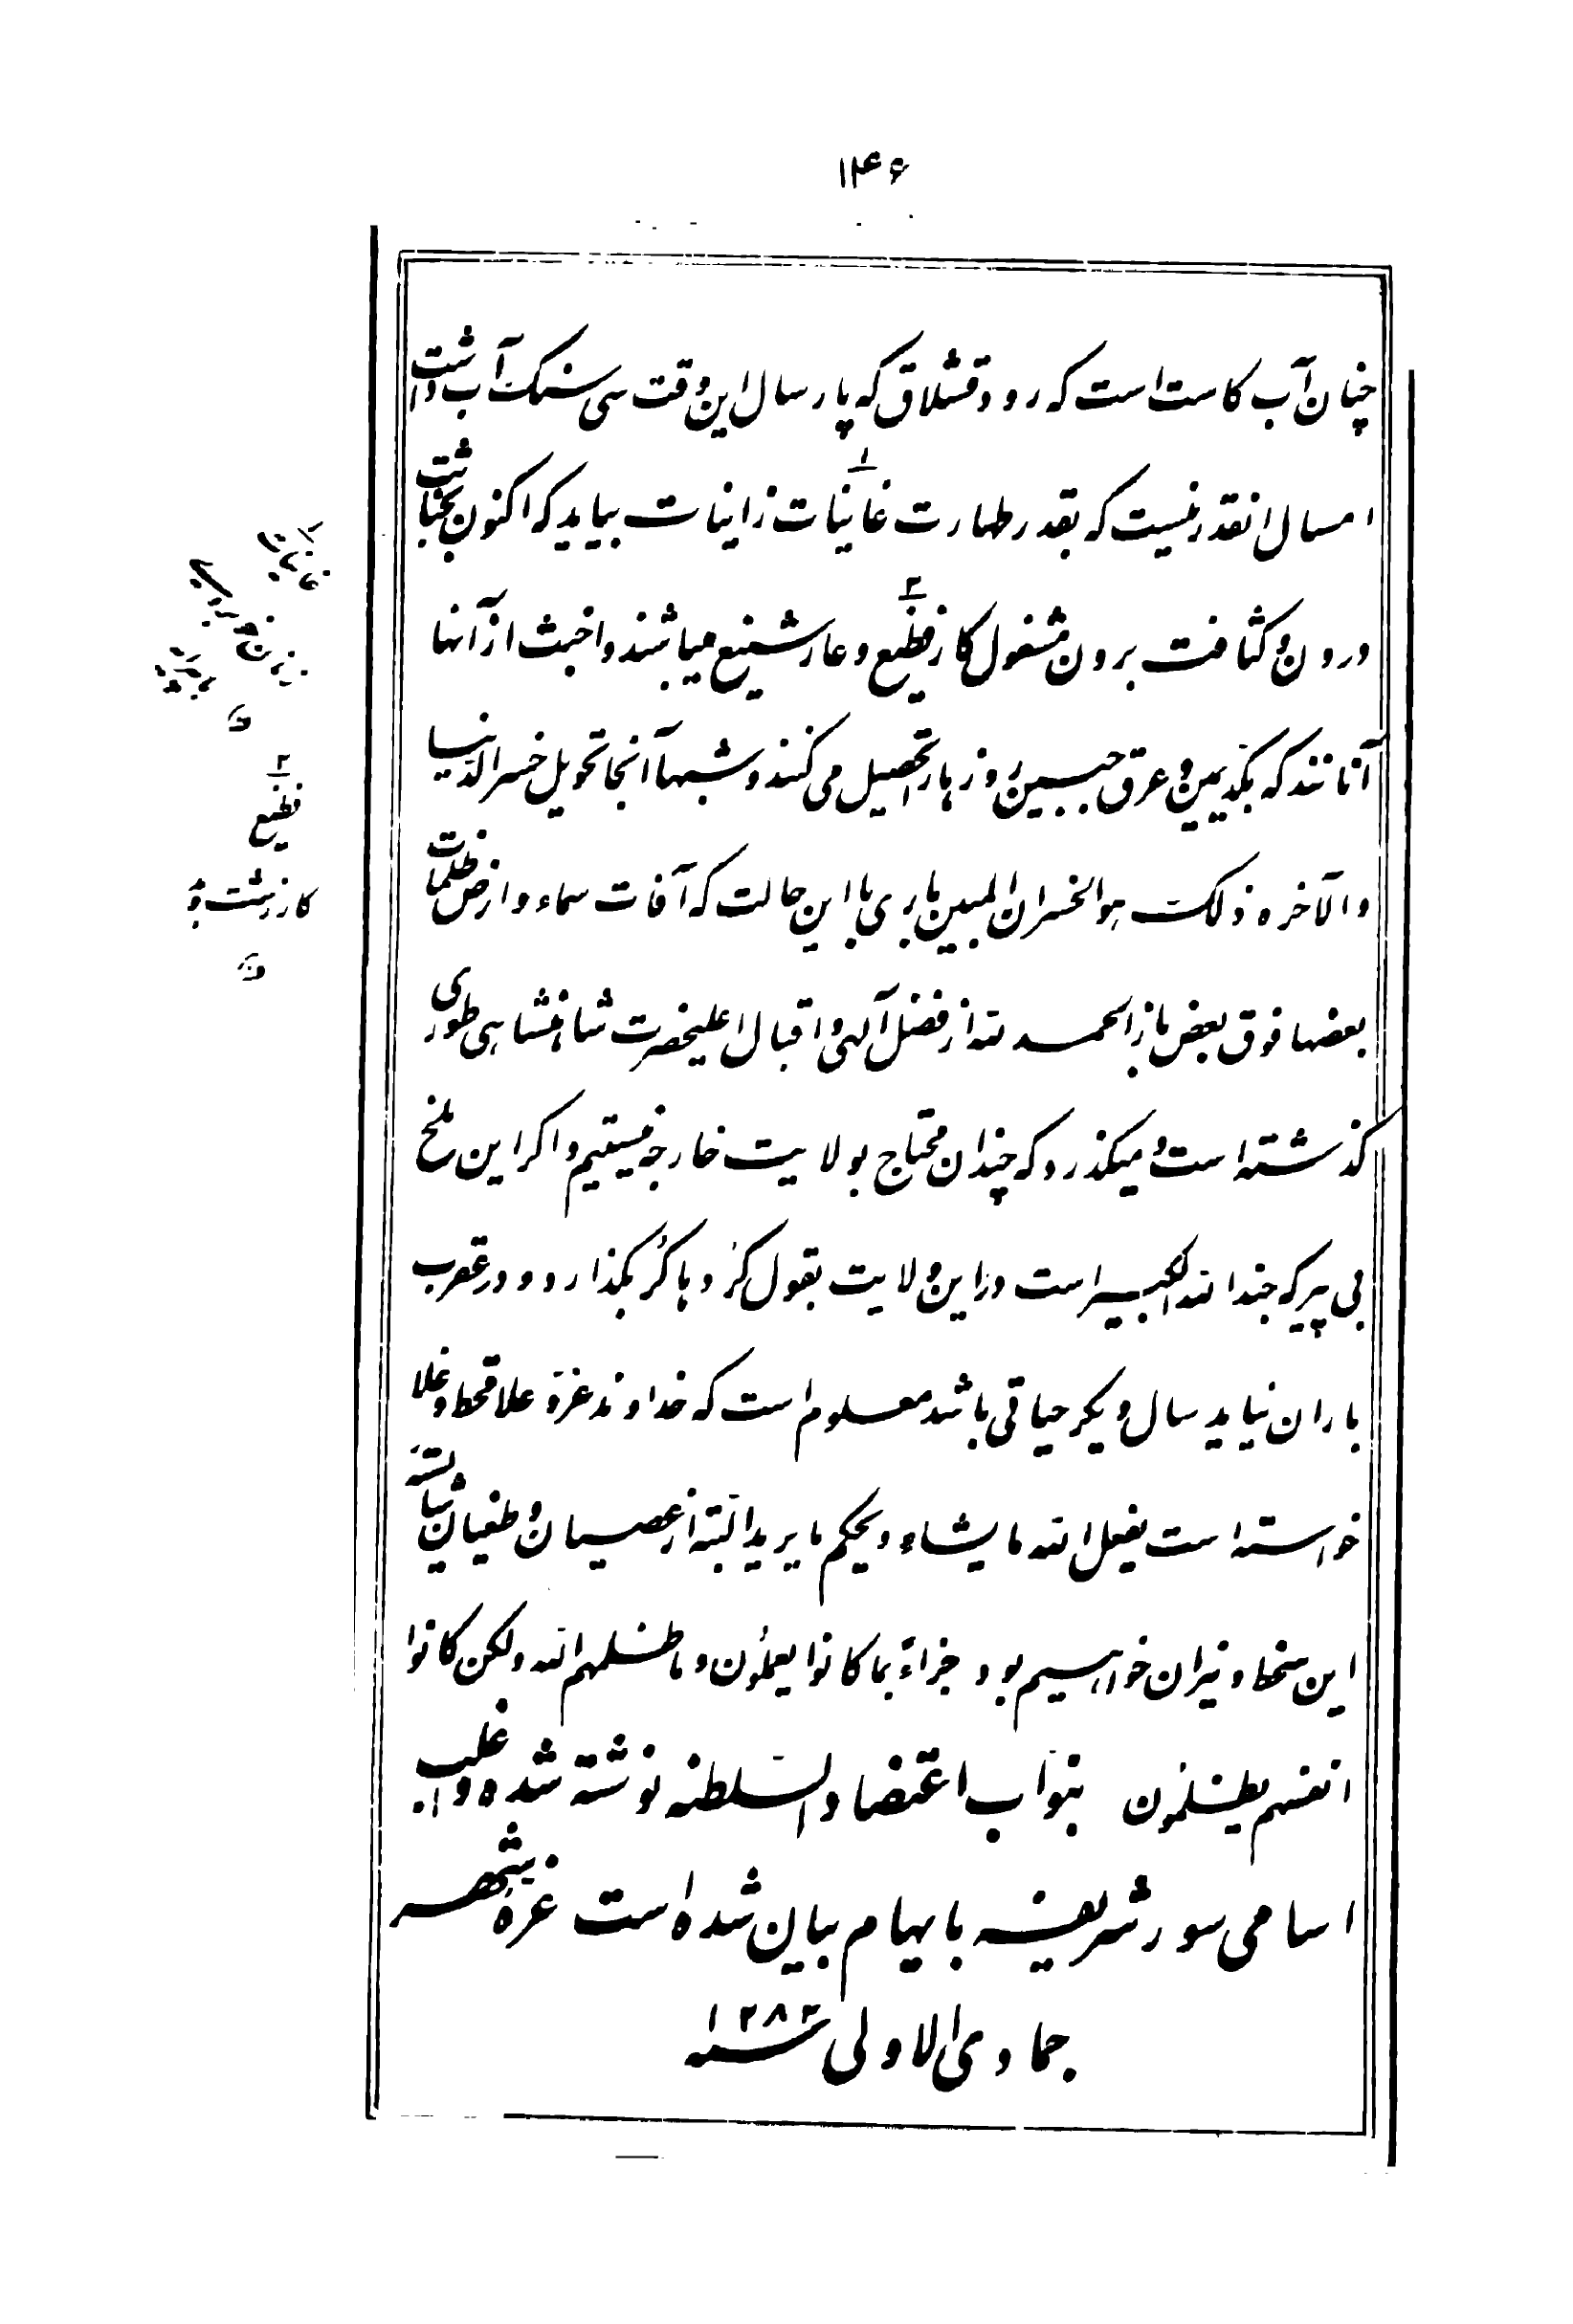 ۱۴۶
چنان آب کاست است که رود قشلاق که پارسال این وقت سی سنک آب داشت
امسال انقدر نیست که بقدر طهارت غاینات زاینات بیاید که اکنون بخباثت
درون و کثافت برون مشغول کار فظیع و عار شنیع میباشند و اخبث از آنها
آنانند که بکد یمین و عرق جبین روزها تحصیل می کنند و شبها آنجا تحویل خسر الدنیا
و الآخره ذلک هو الخسران المبین باری با این حالت که آفات سماء و ارض ظلمات
بعضها فوق بعض باز الحمد لله از فضل آلهی و اقبال اعلیحضرت شاهنشاهی طوری
کذشته است و میکذرد که چندان محتاج بولایت خارجه نیستیم و اکر این ملخ
بی پیر که جند الله الکبیر است در این ولایت بقول کردها کر بکذارد و در عقرب
باران نیاید سال دیکر حیاتی باشد معلوم است که خداوند عزّ و علا قحط و غلا
خواسته است یفعل الله ما یشاء و یحکم ما یرید البته از عصیان و طغیان شایسته
این سخط و نیران خواهیم بود جزاءً بما کانوا یعملون و ما ظلمهم الله ولکن کانوا
انفسهم یظلمون بنواب اعتضاد السلطنه نوشته شده و اغلب
اسامی سور شریفه بابهام بیان شده است غرّه شهر
جمادی الاولی سنه ۱۲۸۳
۲
فظیع
کار زشت و بد